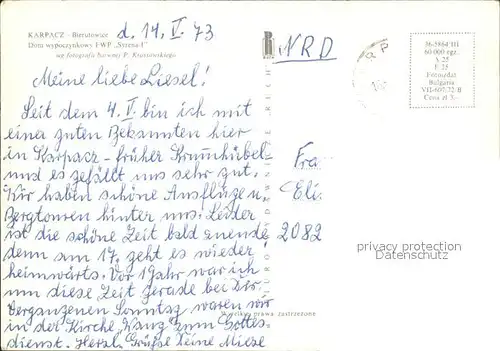 KARPACZ - Bierutowice
Dom wypoczynkowy FWP „Syrena-I"
wg fotografii barwnej P. Krassowskiego
d. 14. V. 73
NRD
36-5864/III
60 000 egz.
A 25
F 25
Fotooțdat
Bulgaria
VII-607-72-B
Cena zł 3,-
Meine liebe Liesel!
Seit dem 4. V. bin ich mit
einer guten Bekannten hier
in Karpacz - früher Krummhübel-
und es gefällt uns sehr gut.
Wir haben schöne Ausflüge u.
Bergtouren hinter uns. Leider
ist die schöne Zeit bald zuende
denn am 17. geht es wieder
heimwärts. Vor 1 Jahr war ich
um diese Zeit gerade bei Dir.
Vergangenen Sonntag waren wir
in der Kirche „Wang" zum Gottes-
dienst. Herzl. Grüße Deine Miese
Fra
Eli
2082
privacy protection
Datenschutz
Wszelkie prawa zastrzeżone